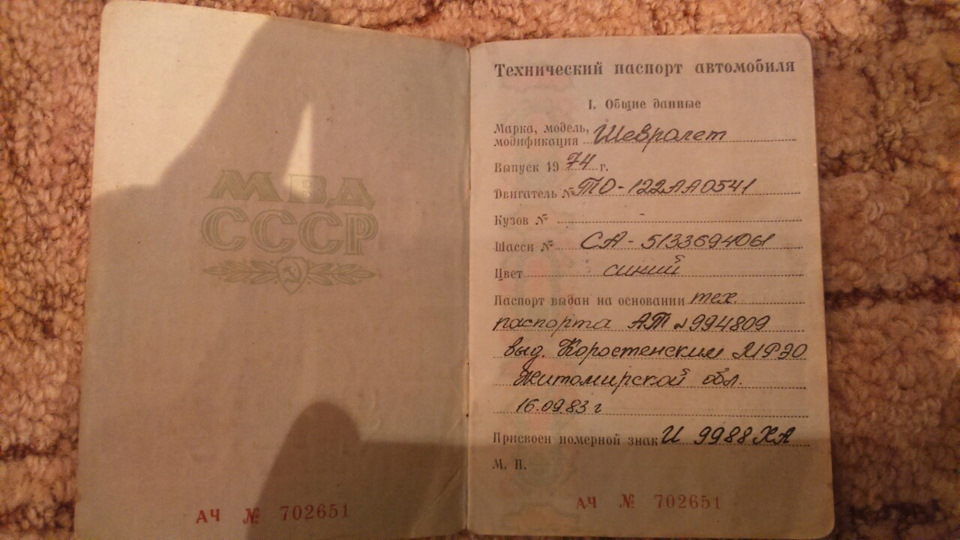 МВД
СССР
АЧ № 702651
Технический паспорт автомобиля
I. Общие данные
Марка, модель,
модификация Шевролет
Выпуск 1974 г.
Двигатель № ТО-122АА0541
Кузов № -
Шасси № СА-5133694061
Цвет синий
Паспорт выдан на основании тех.
паспорта АТ № 994809
выд. Коростенским МРЭО
Житомирской обл.
16.09.83 г
Присвоен номерной знак И 9988 ХА
М. П.
АЧ № 702651